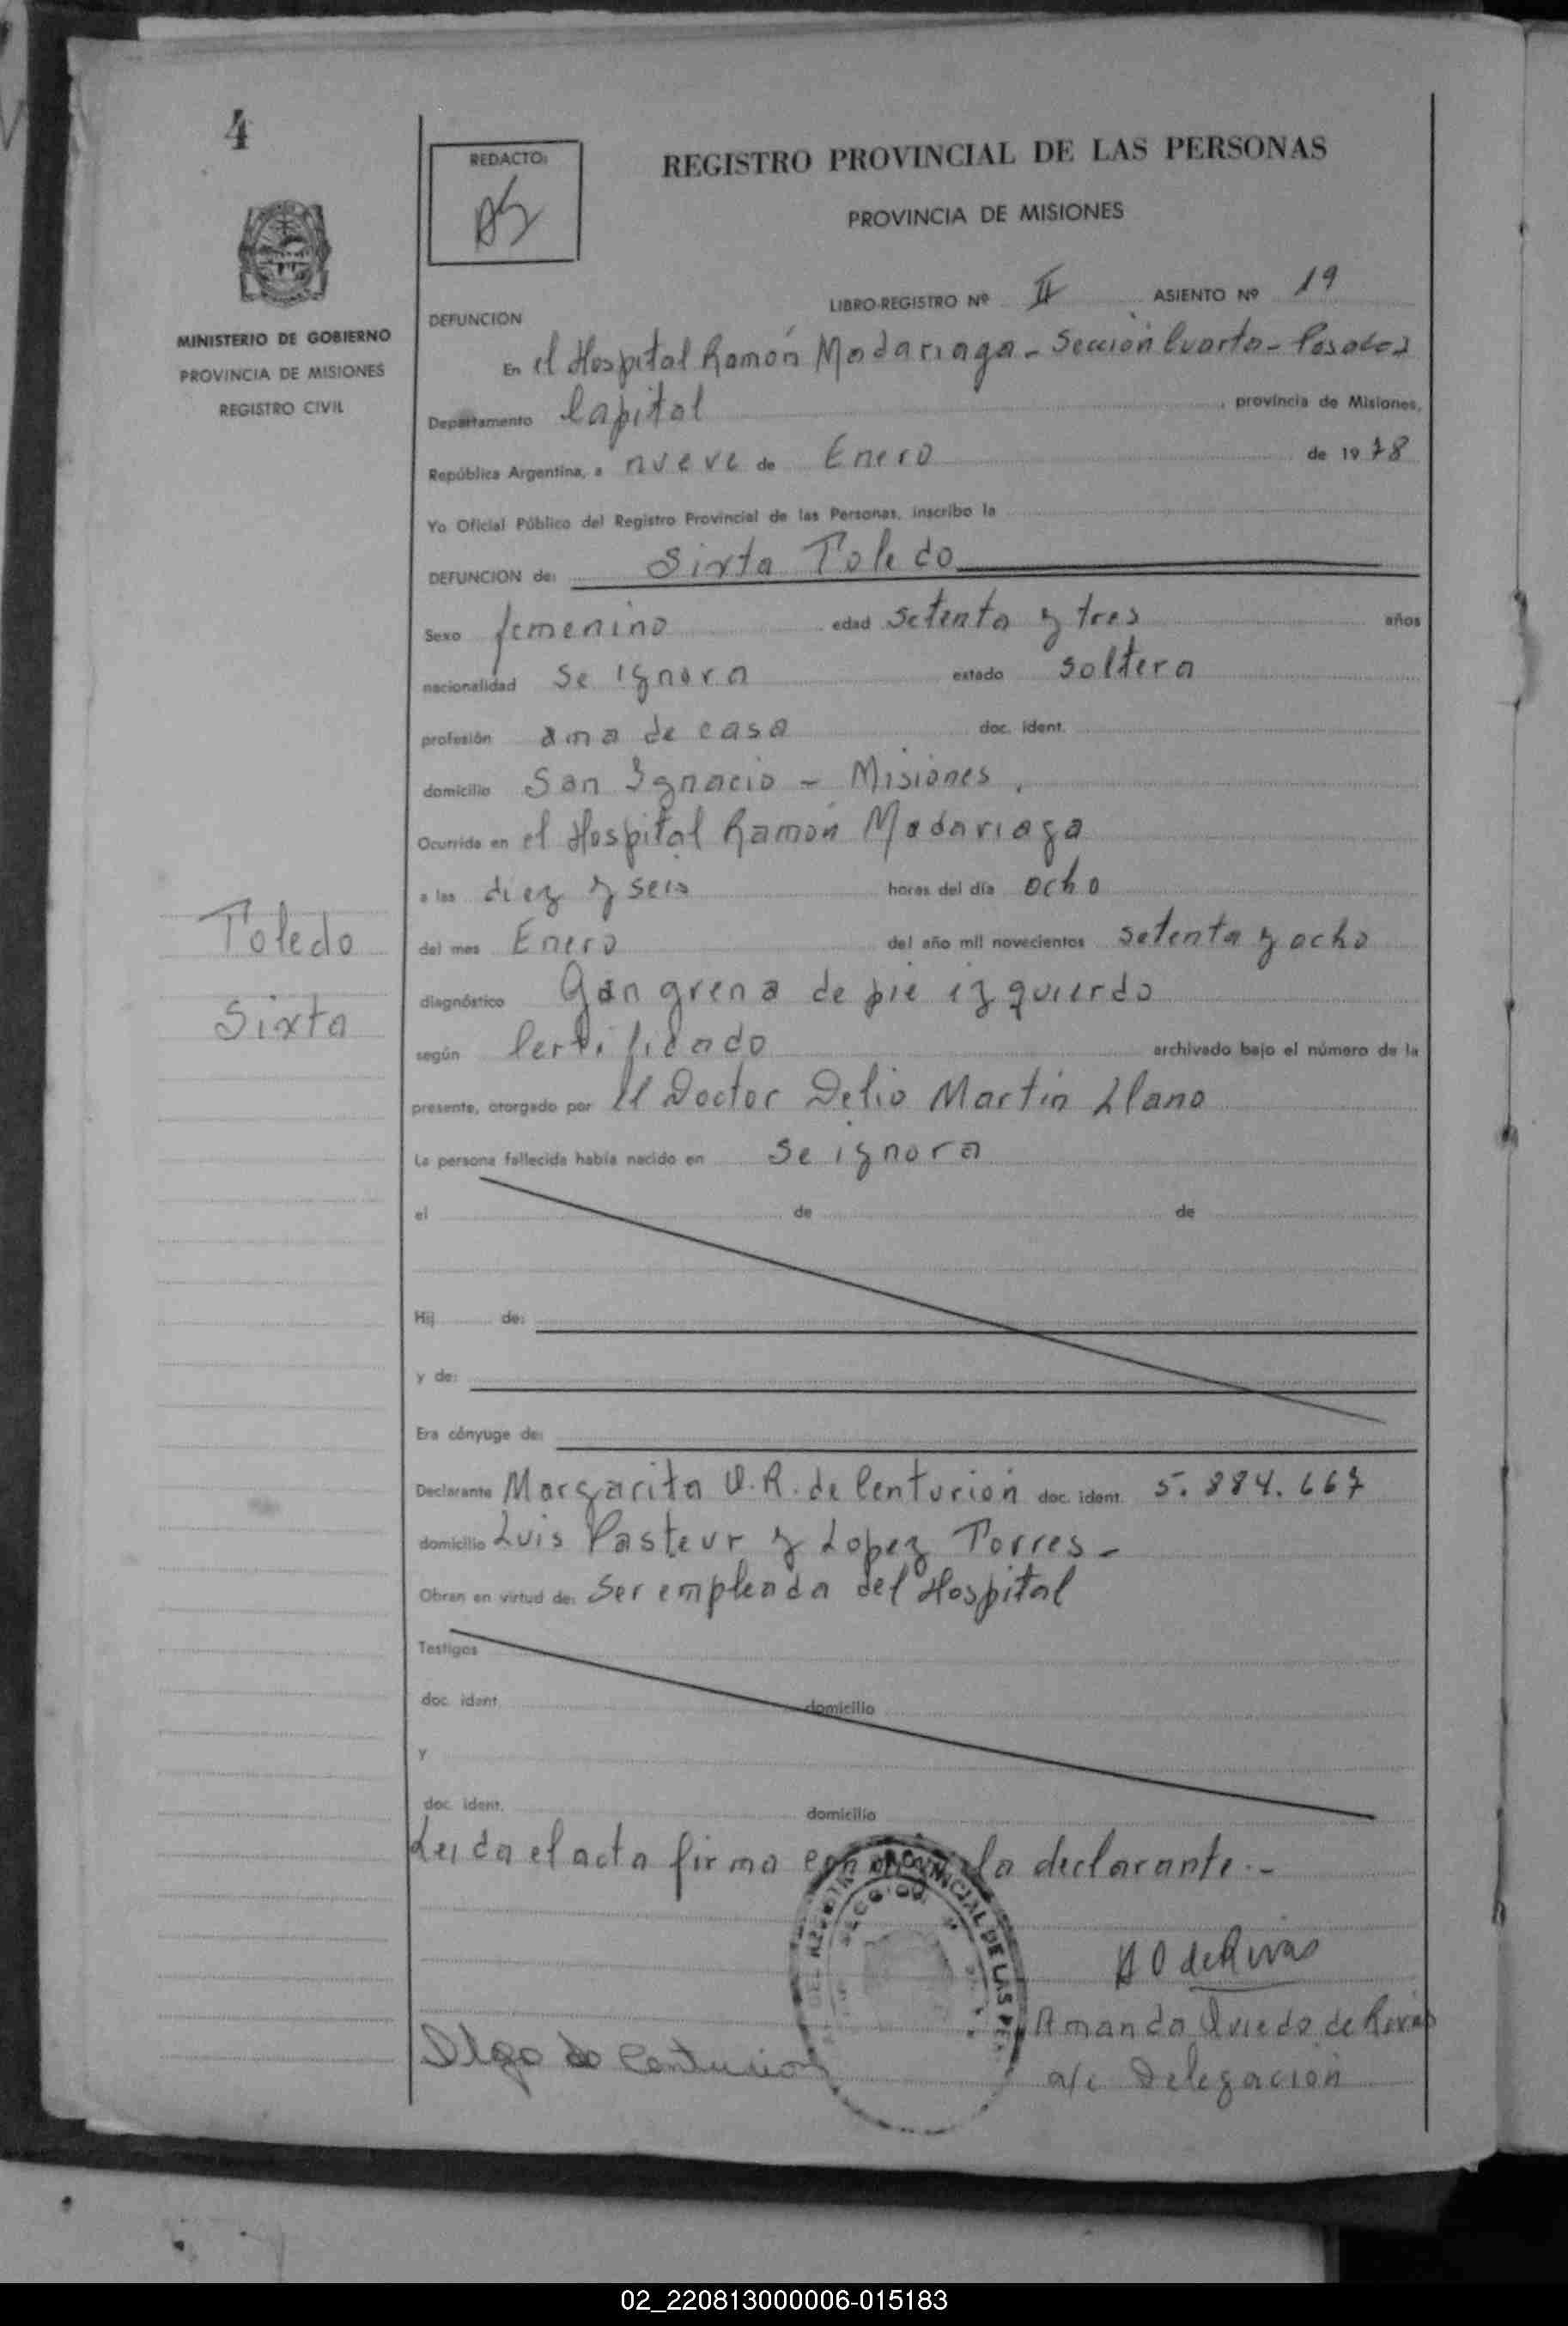 4
REDACTO:
REGISTRO PROVINCIAL DE LAS PERSONAS
PROVINCIA DE MISIONES
LIBRO-REGISTRO Nº II ASIENTO Nº 19
MINISTERIO DE GOBIERNO
PROVINCIA DE MISIONES
REGISTRO CIVIL
DEFUNCION
En el Hospital Ramón Madariaga - Sección Cuarta - Posadas
Departamento Capital , provincia de Misiones,
República Argentina, a nueve de Enero de 1978
Yo Oficial Público del Registro Provincial de las Personas, inscribo la
DEFUNCION de: Sixta Toledo
Sexo femenino edad setenta y tres años
nacionalidad se ignora estado soltera
profesión ama de casa doc. ident.
domicilio San Ignacio - Misiones.
Ocurrida en el Hospital Ramón Madariaga
a las diez y seis horas del día ocho
del mes Enero del año mil novecientos setenta y ocho
Toledo
Sixta
diagnóstico Gangrena de pie izquierdo
según Certificado archivado bajo el número de la
presente, otorgado por el Doctor Delio Martín Llano
La persona fallecida había nacido en se ignora
el de de
Hij de:
y de:
Era cónyuge de:
Declarante Margarita O.R. de Centurión doc. ident. 5.884.667
domicilio Luis Pasteur y Lopez Torres -
Obran en virtud de: ser empleada del Hospital
Testigos
doc. ident. domicilio
y
doc. ident. domicilio
Leida el acta firma la declarante.-
REGISTRO PROVINCIAL DE LAS PER
A O de Rivas
Amanda Oviedo de Rivas
a/c Delegación
de Centurion
02_220813000006-015183